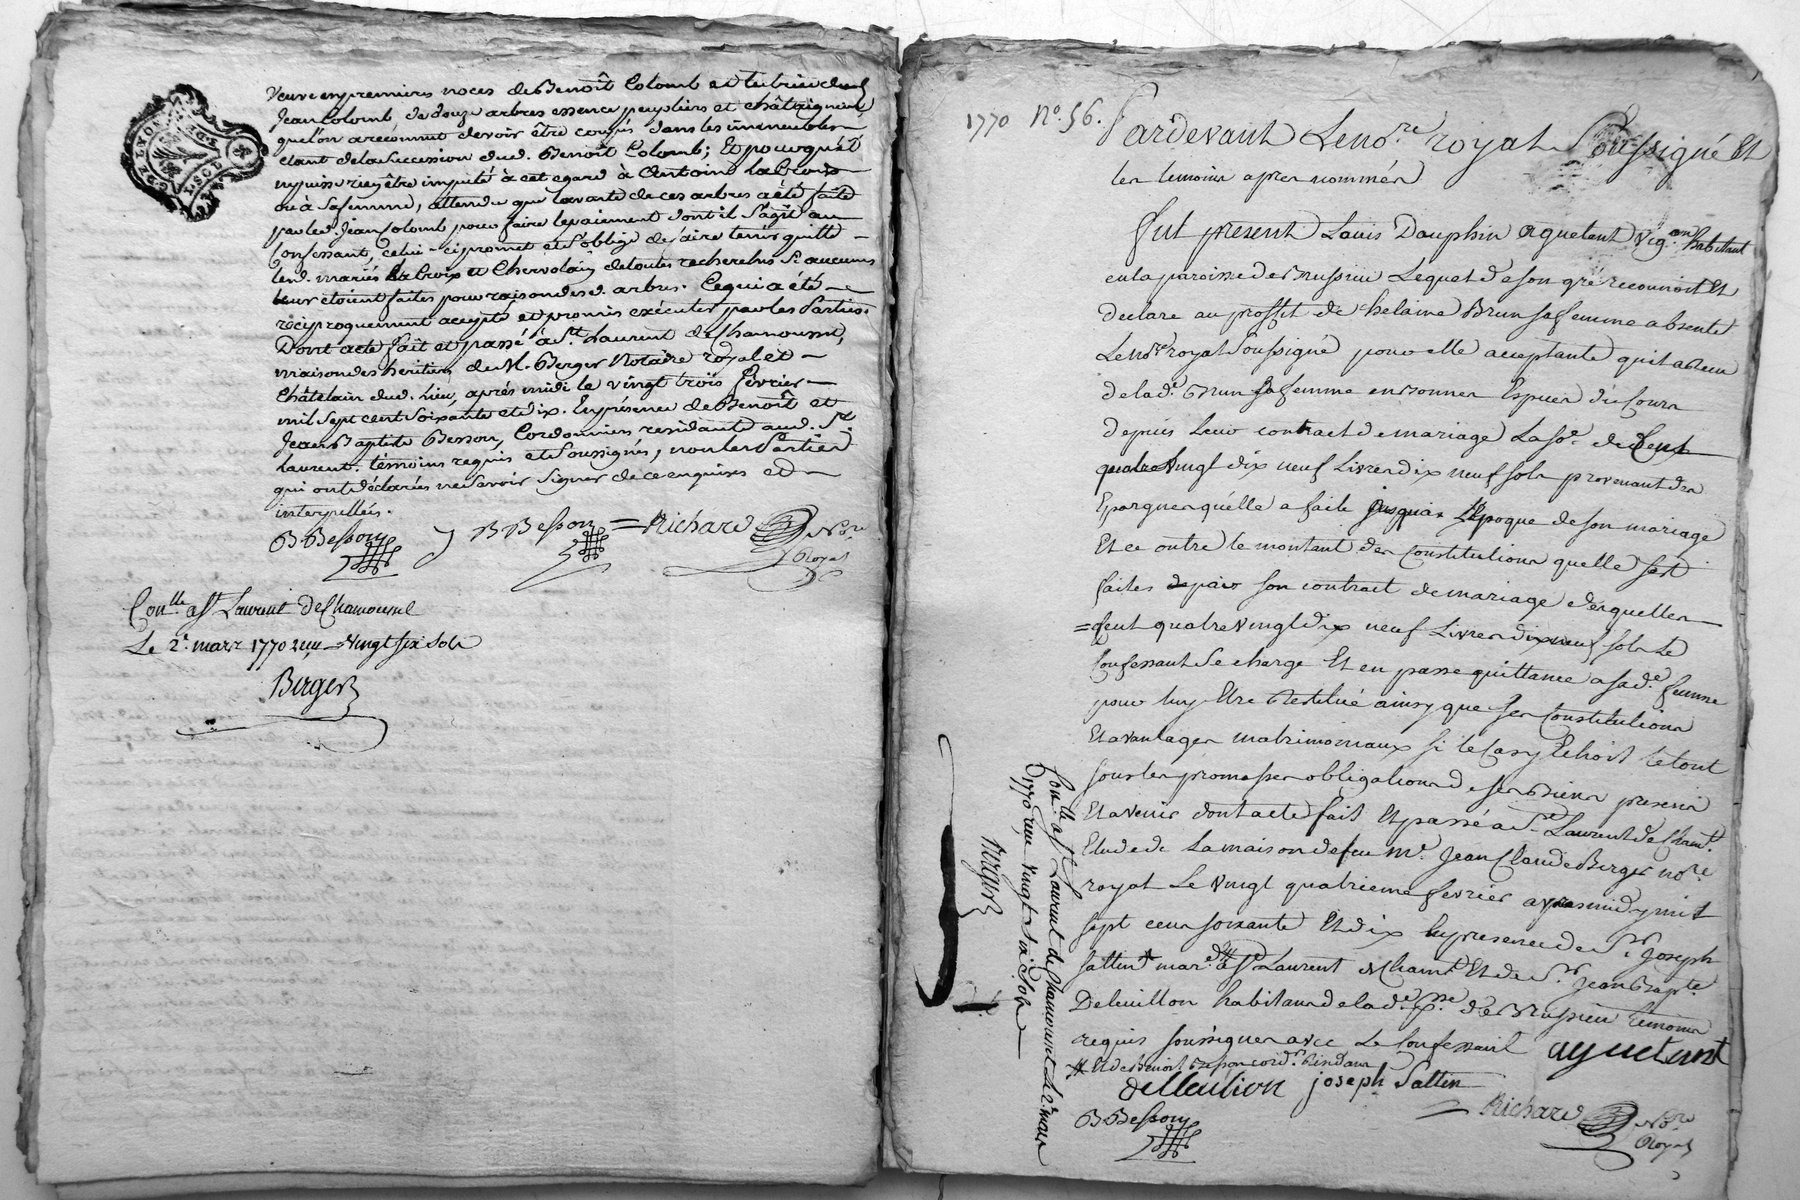 G. DE LYON
veuve en premieres noces de Benoît Colomb et tutrice dud.
Jean Colomb de douze arbres essence peupliers et châtaigniers
que l'on a reconnut devoir être coupés dans les immeubles
etant de la succession dud. Benoît Colomb; Et pourquoi
ne puisse rien être imputé à cet egard à Antoine LaCroix
ou à sa femme, attendu que la vante de ces arbres a été faite
par led. Jean Colomb pour faire le paiement dont il s'agit au
Confessant, celui-ci promet et s'oblige de faire tenir quitte
lesd. mariés LaCroix et Chervolain de toutes recherches si aucunes
leur etoient faites pour raison desd. arbres. Ce qui a été
reciproquement accepté et promis exécuter par les Parties.
Dont acte fait et passé à St. Laurent de Chamousset,
maison des heritiers de M. Berger Notaire royal et
Châtelain dud. Lieu, après midi le vingt trois février
mil sept cent soixante et dix. En présence de Benoît et
Jean Baptiste Besson, Cordonniers residants aud. St.
Laurent. témoins requis et soussignés, non les Parties
qui ont déclarées ne savoir signer de ce enquises et
interpellées.
B Besson J B Besson = Richard Nore
Royal
Conlle a St Laurent de Chamousset
Le 2. mars 1770 reçu vingt six sols
Berger
1770 No. 56.
Pardevant Le nore. royal Soussigné Et
les temoins apres nommés
fut present Louis Dauphin aguetant vigon habittant
en la paroisse de Brussieu Lequel de son gré reconnoit Et
declare au proffit de helaine Brun sa femme absente
Le nore royal Soussigné pour elle acceptante quil a reçu
de lad. Brun sa femme en bonnes Espues du Cours
depuis Leur contract de mariage La soe. de Cent
quatre vingt dix neuf Livres dix neuf sols provenant des
Epargnes quelle a faite jusquas L'Epoque de son mariage
Et ce outre le montant des Constitutions quelle sest
faites depuis son contract de mariage desquelles
= Cent quatre vingt dix neuf Livres dix neuf sols Le
Confessant Se charge Et en passe quittance a sade. femme
pour luy Etre Restitué ainsy que ses Constitutions
Et avantages matrimoniaux si le Cas y Echoit le tout
sous les promesses obligations de ses Biens presens
Et avenir dont acte fait Et passé a St. Laurent de Chamt.
Etude de La maison de feu Me. Jean Claude Berger nore
royal Le vingt quatrieme fevrier apres midy mil
sept cens soixante Et dix En presence de Sr. Joseph
Sattin mard. a St Laurent de Chamt. Et de Sr. Jean Bapte.
Deleuillon habitans de lade. psse. de Brussieu temoins
requis soussignes avec Le Confessant aguetant
# Et de Benoit Besson cordr. Residans
deLleulion joseph Sattin
B Besson Richard Nore
Royal
Conlle a St Laurent de Chamousset Le 2. mars
1770 reçu vingt six sols
Berger